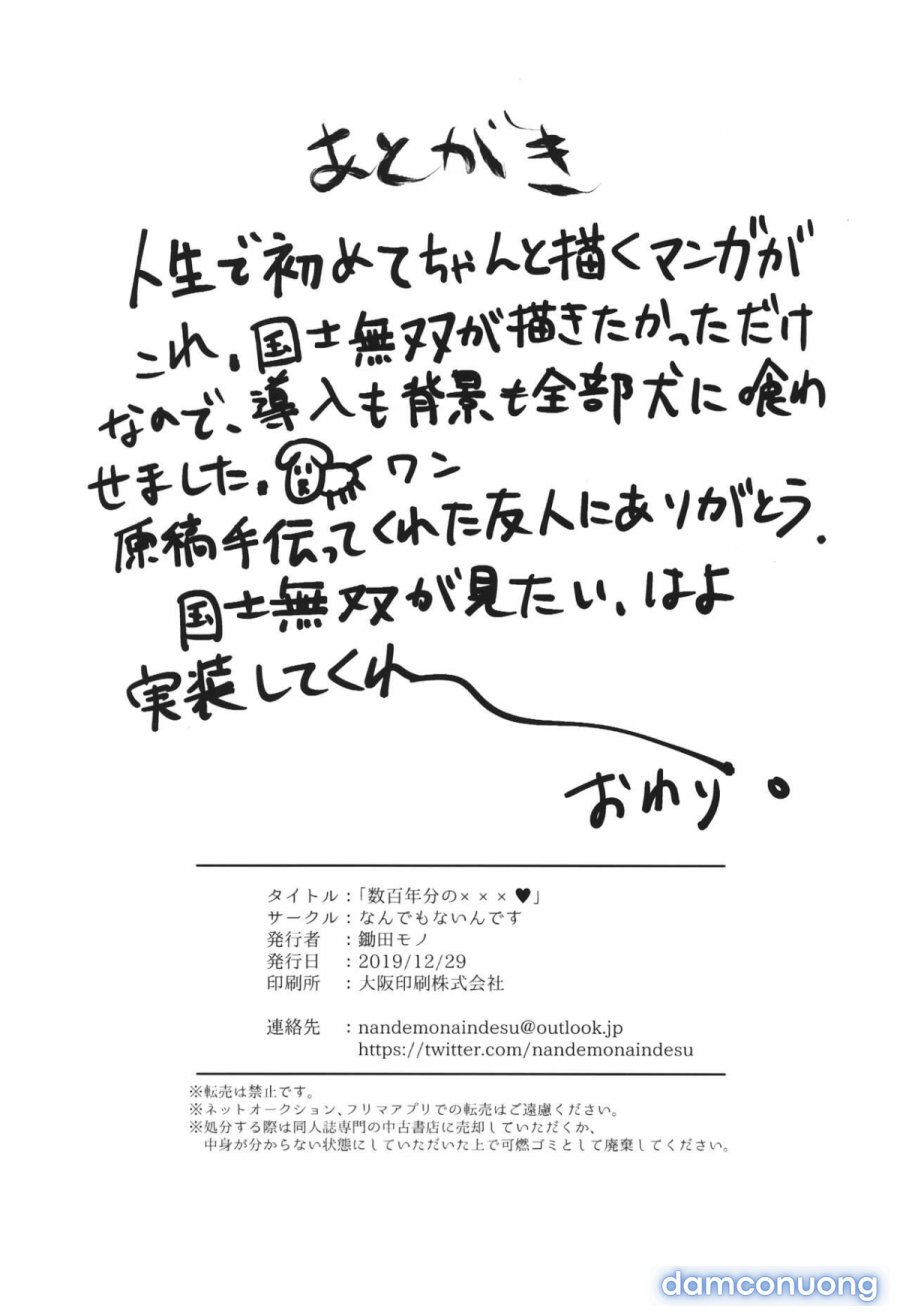 あとがき
人生で初めてちゃんと描くマンガが
これ。国士無双が描きたかっただけ
なので、導入も背景も全部犬に喰わ
せました。ワン
原稿手伝ってくれた友人にありがとう。
国士無双が見たい。はよ
実装してくれ
おわり。
タイトル：「数百年分の×××♥」
サークル：なんでもないんです
発行者　：鋤田モノ
発行日　：2019/12/29
印刷所　：大阪印刷株式会社
連絡先　：nandemonaindesu@outlook.jp
https://twitter.com/nandemonaindesu
※転売は禁止です。
※ネットオークション、フリマアプリでの転売はご遠慮ください。
※処分する際は同人誌専門の中古書店に売却していただくか、
中身が分からない状態にしていただいた上で可燃ゴミとして廃棄してください。
damconuong